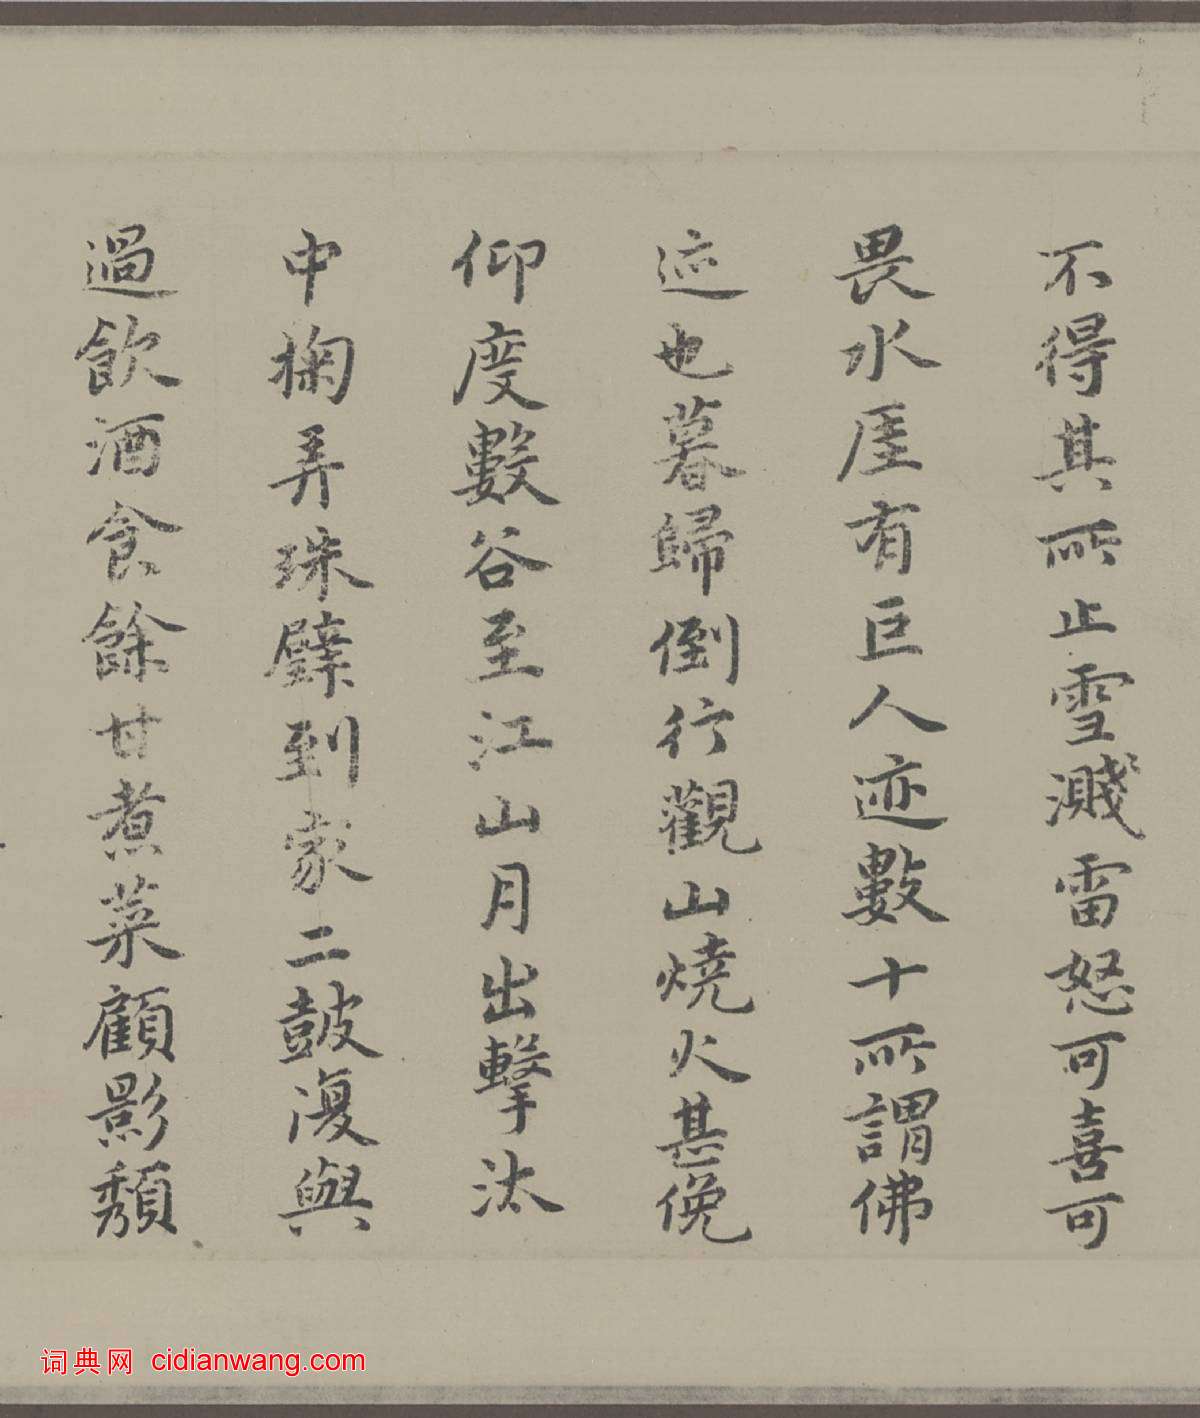 不得其所止雪濺雷怒可喜可
畏水厓有巨人迹數十所謂佛
迹也暮歸倒行觀山燒火甚俛
仰度數谷至江山月出擊汰
中掬弄珠璧到家二鼓復與
過飲酒食餘甘煮菜顧影頹
词典网 cidianwang.com